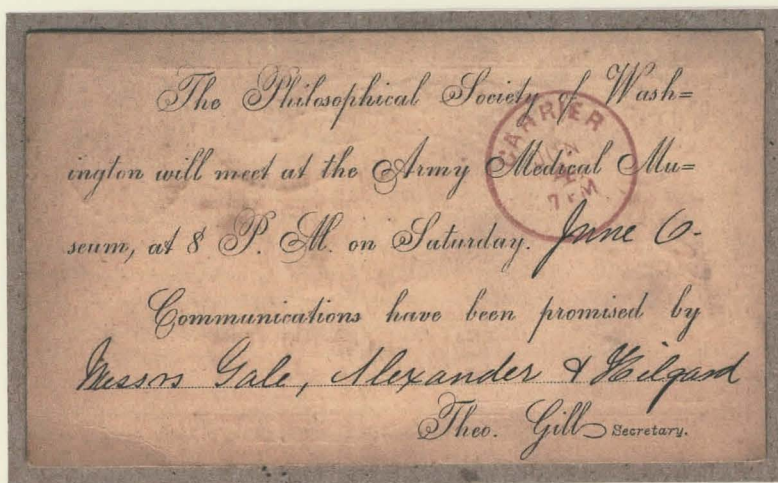 The Philosophical Society of Wash=
ington will meet at the Army Medical Mu=
seum, at 8 P. M. on Saturday. June 6.
Communications have been promised by
Messrs Gale, Alexander & Hilgard
Theo. Gill Secretary.
CARRIER
JUN
7 PM